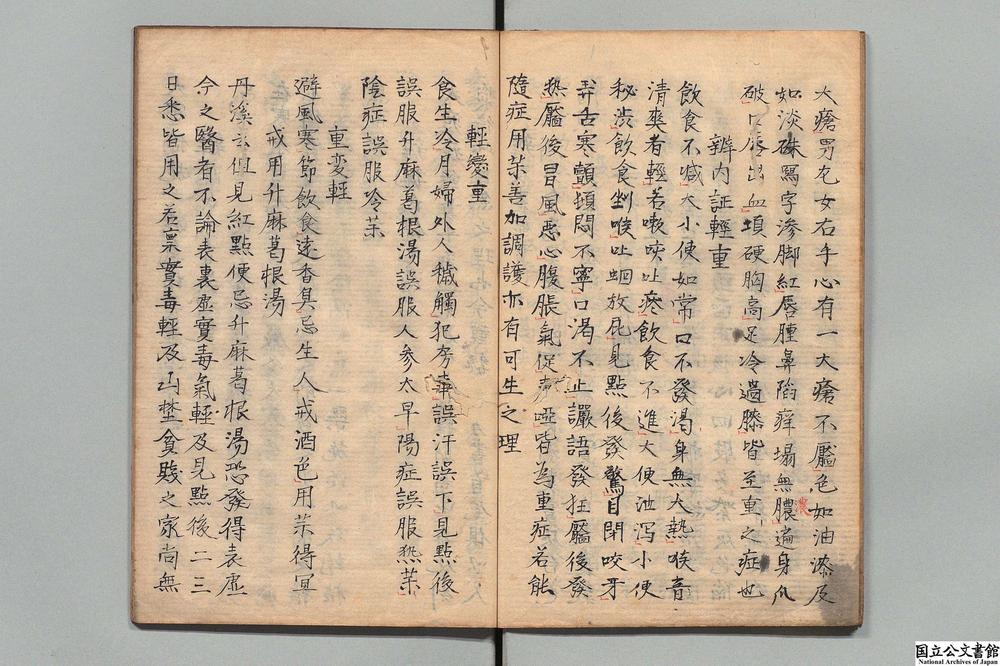 大瘡男左女右手心有一大瘡不靨色如油漆及
如淡硃寫字滲脚紅唇腫鼻陷痒塌無膿遍身爪
膿
破口唇出血項硬胸高足冷過膝皆至重之症也
辨内証輕重
飲食不减大小便如常口不發渴身無大熱喉音
清爽者輕若嗽呛吐痰飲食不進大便泄瀉小便
秘渋飲食剉喉吐蛔放屁見點後發驚目閉咬牙
弄舌寒顫煩悶不寧口渴不止讝語發狂靨後發
热靨後冒風悪心腹脹氣促声啞皆為重症若能
隨症用茶善加調護亦有可生之理
輕變重
食生冷月婦外人穢觸犯房事誤汗誤下見點後
誤服升麻葛根湯誤服人参大早陽症誤服热茶
陰症誤服冷茶
重変輕
避風寒節飲食遠香臭忌生人戒酒色用茶得宜
戒用升麻葛根湯
丹溪云但見紅點便忌升麻葛根湯恐發得表虚
今之醫者不論表裏虚實毒氣輕及見點後二三
日悉皆用之若禀實毒輕及山埜貧賤之家尚無
国立公文書館
National Archives of Japan